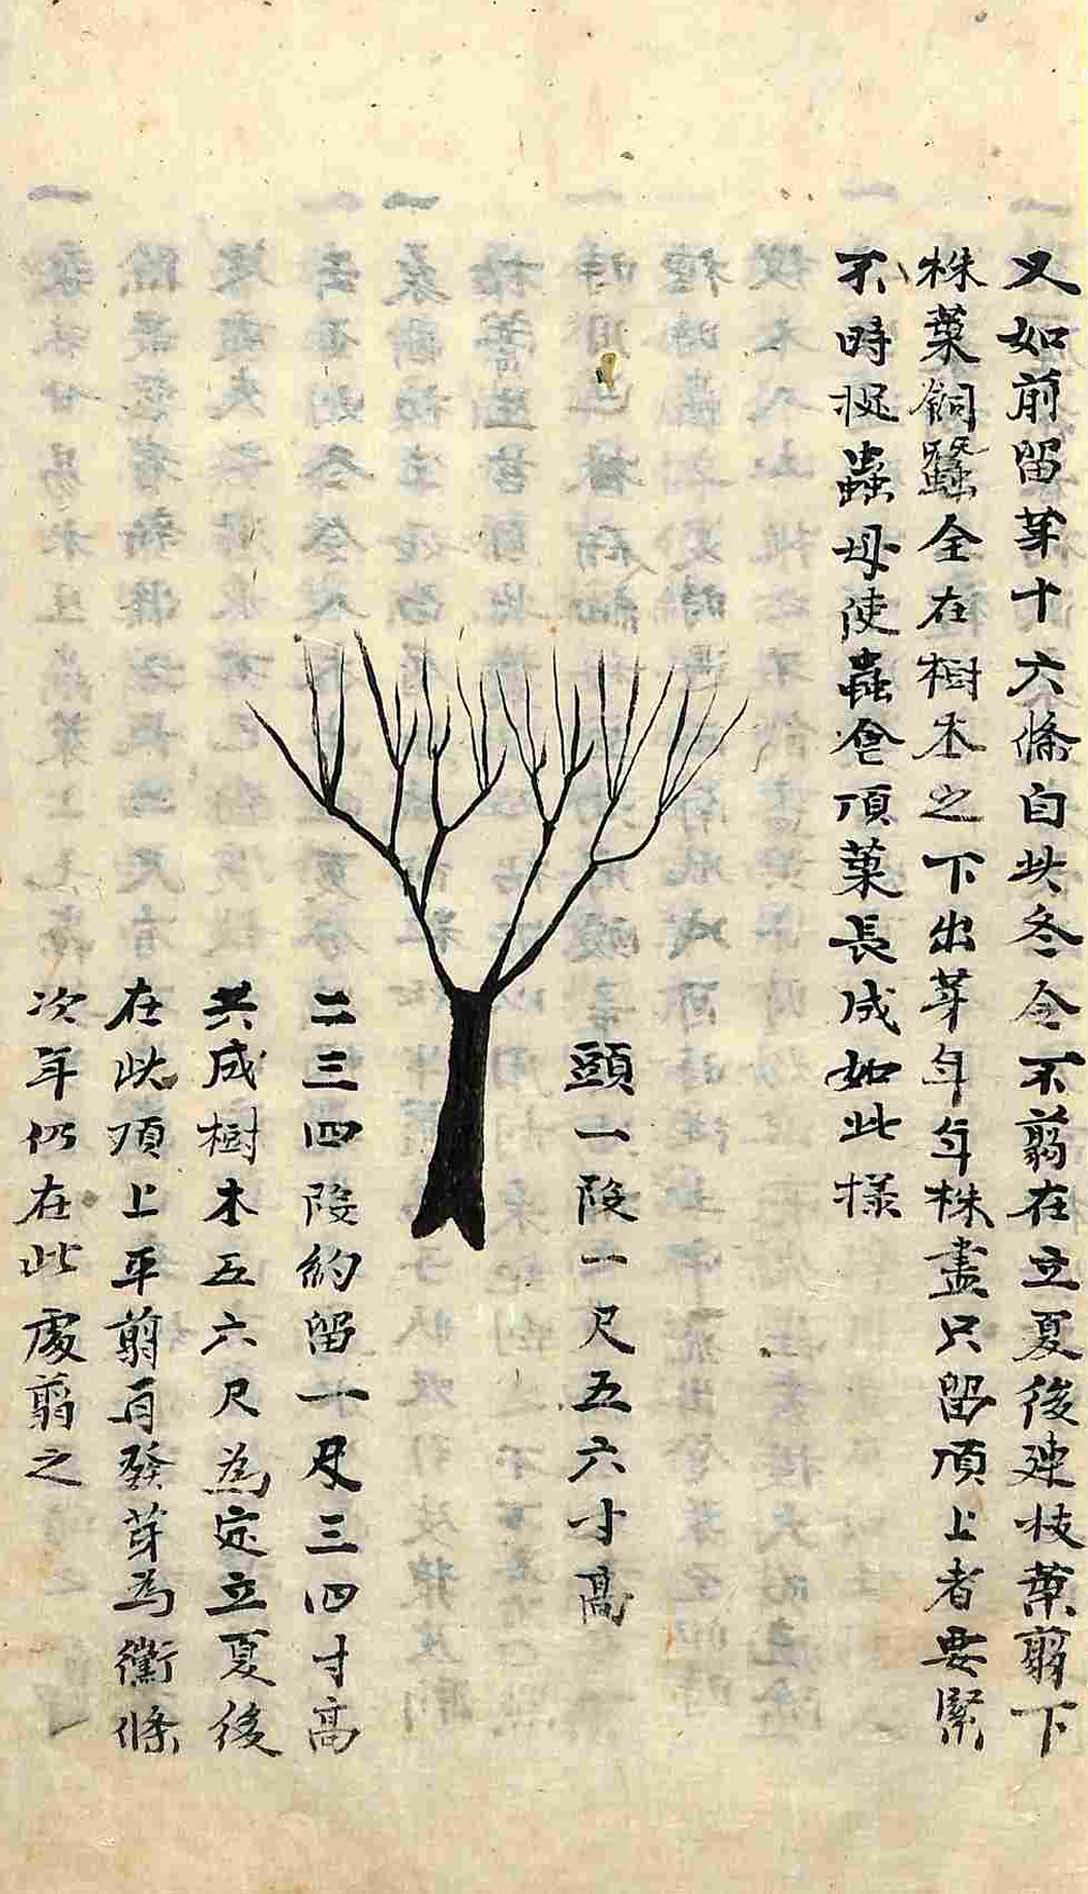 又如前留芽十六條自此冬令不翦在立夏後連枝葉翦下
株葉飼蠶全在樹木之下出芽年年株盡只留頂上者要緊
不時捉蟲毋使蟲食頂葉長成如此様
頭一段一尺五六寸高
二三四段約留一尺三四寸高
共成樹木五六尺為定立夏後
在此項上平翦再發芽為衛條
次年仍在此處翦之